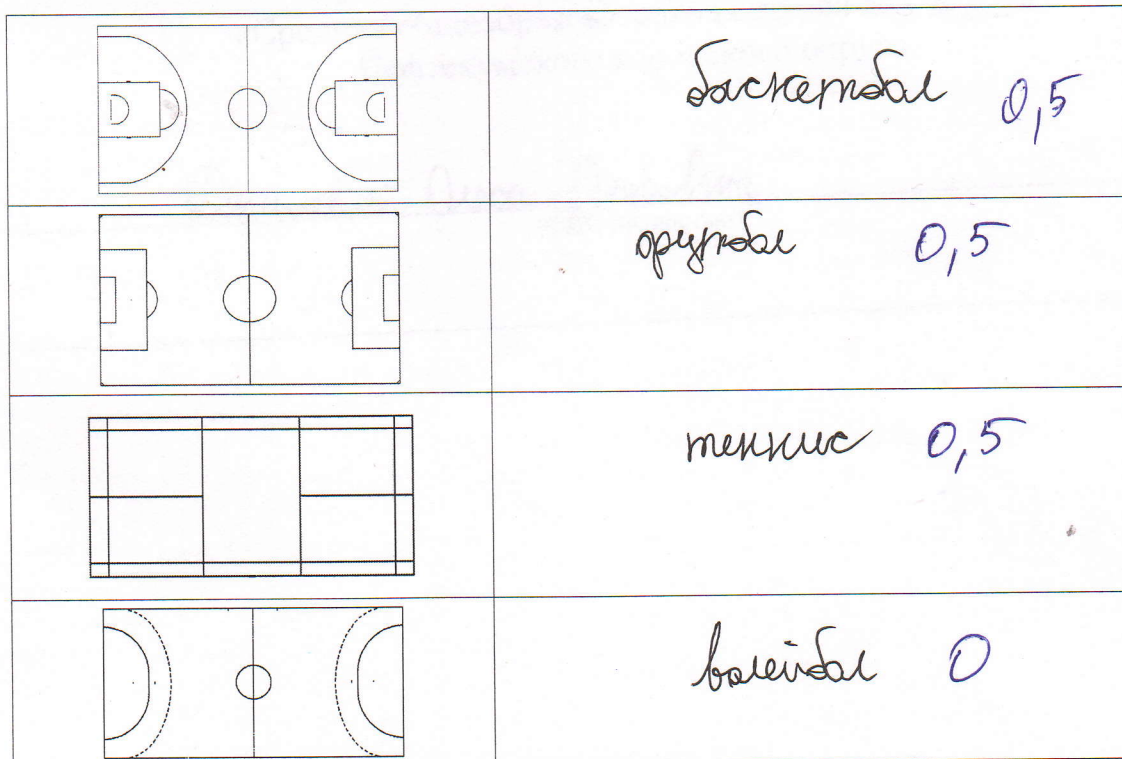 баскетбол 0,5
футбол 0,5
теннис 0,5
волейбол 0